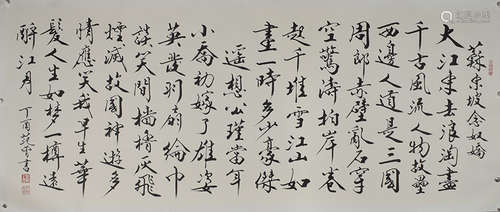 蘇東坡念奴嬌
大江東去浪淘盡
千古風流人物故壘
西邊人道是三國
周郎赤壁亂石穿
空驚濤拍岸卷
起千堆雪江山如
畫一時多少豪傑
遥想公瑾當年
小喬初嫁了雄姿
英發羽扇綸巾
談笑間檣櫓灰飛
煙滅故國神遊多
情應笑我早生華
髮人生如夢一樽還
酹江月
丁酉 書